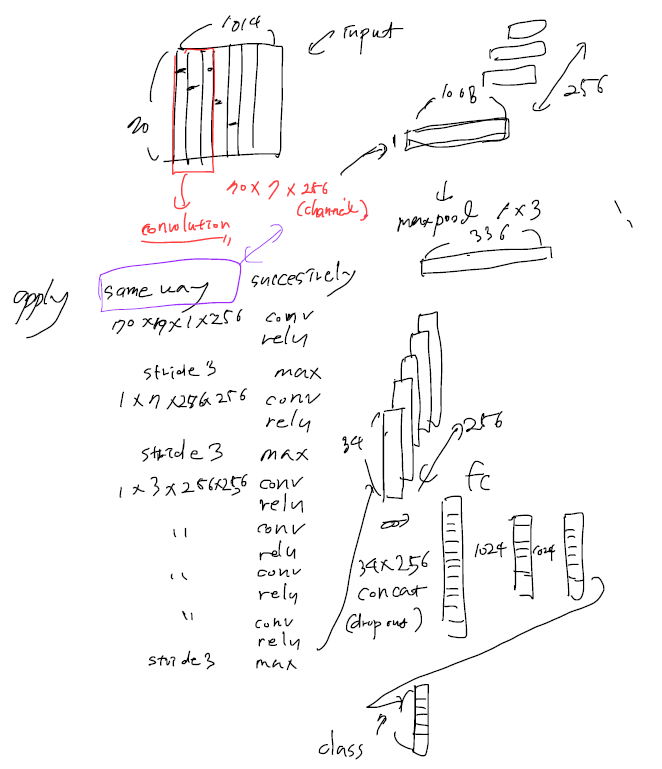 1014
input
70
70 × 7 × 256
(channel)
convolution
1008
1
256
maxpool 1 × 3
336
apply same way succesively
70 × 7 × 1 × 256 conv
relu
stride 3 max
1 × 7 × 256 × 256 conv
relu
stride 3 max
1 × 3 × 256 × 256 conv
relu
" conv
relu
" conv
relu
" conv
relu
stride 3 max
34
256
fc
34 × 256
concat
(drop out)
1024
1024
class